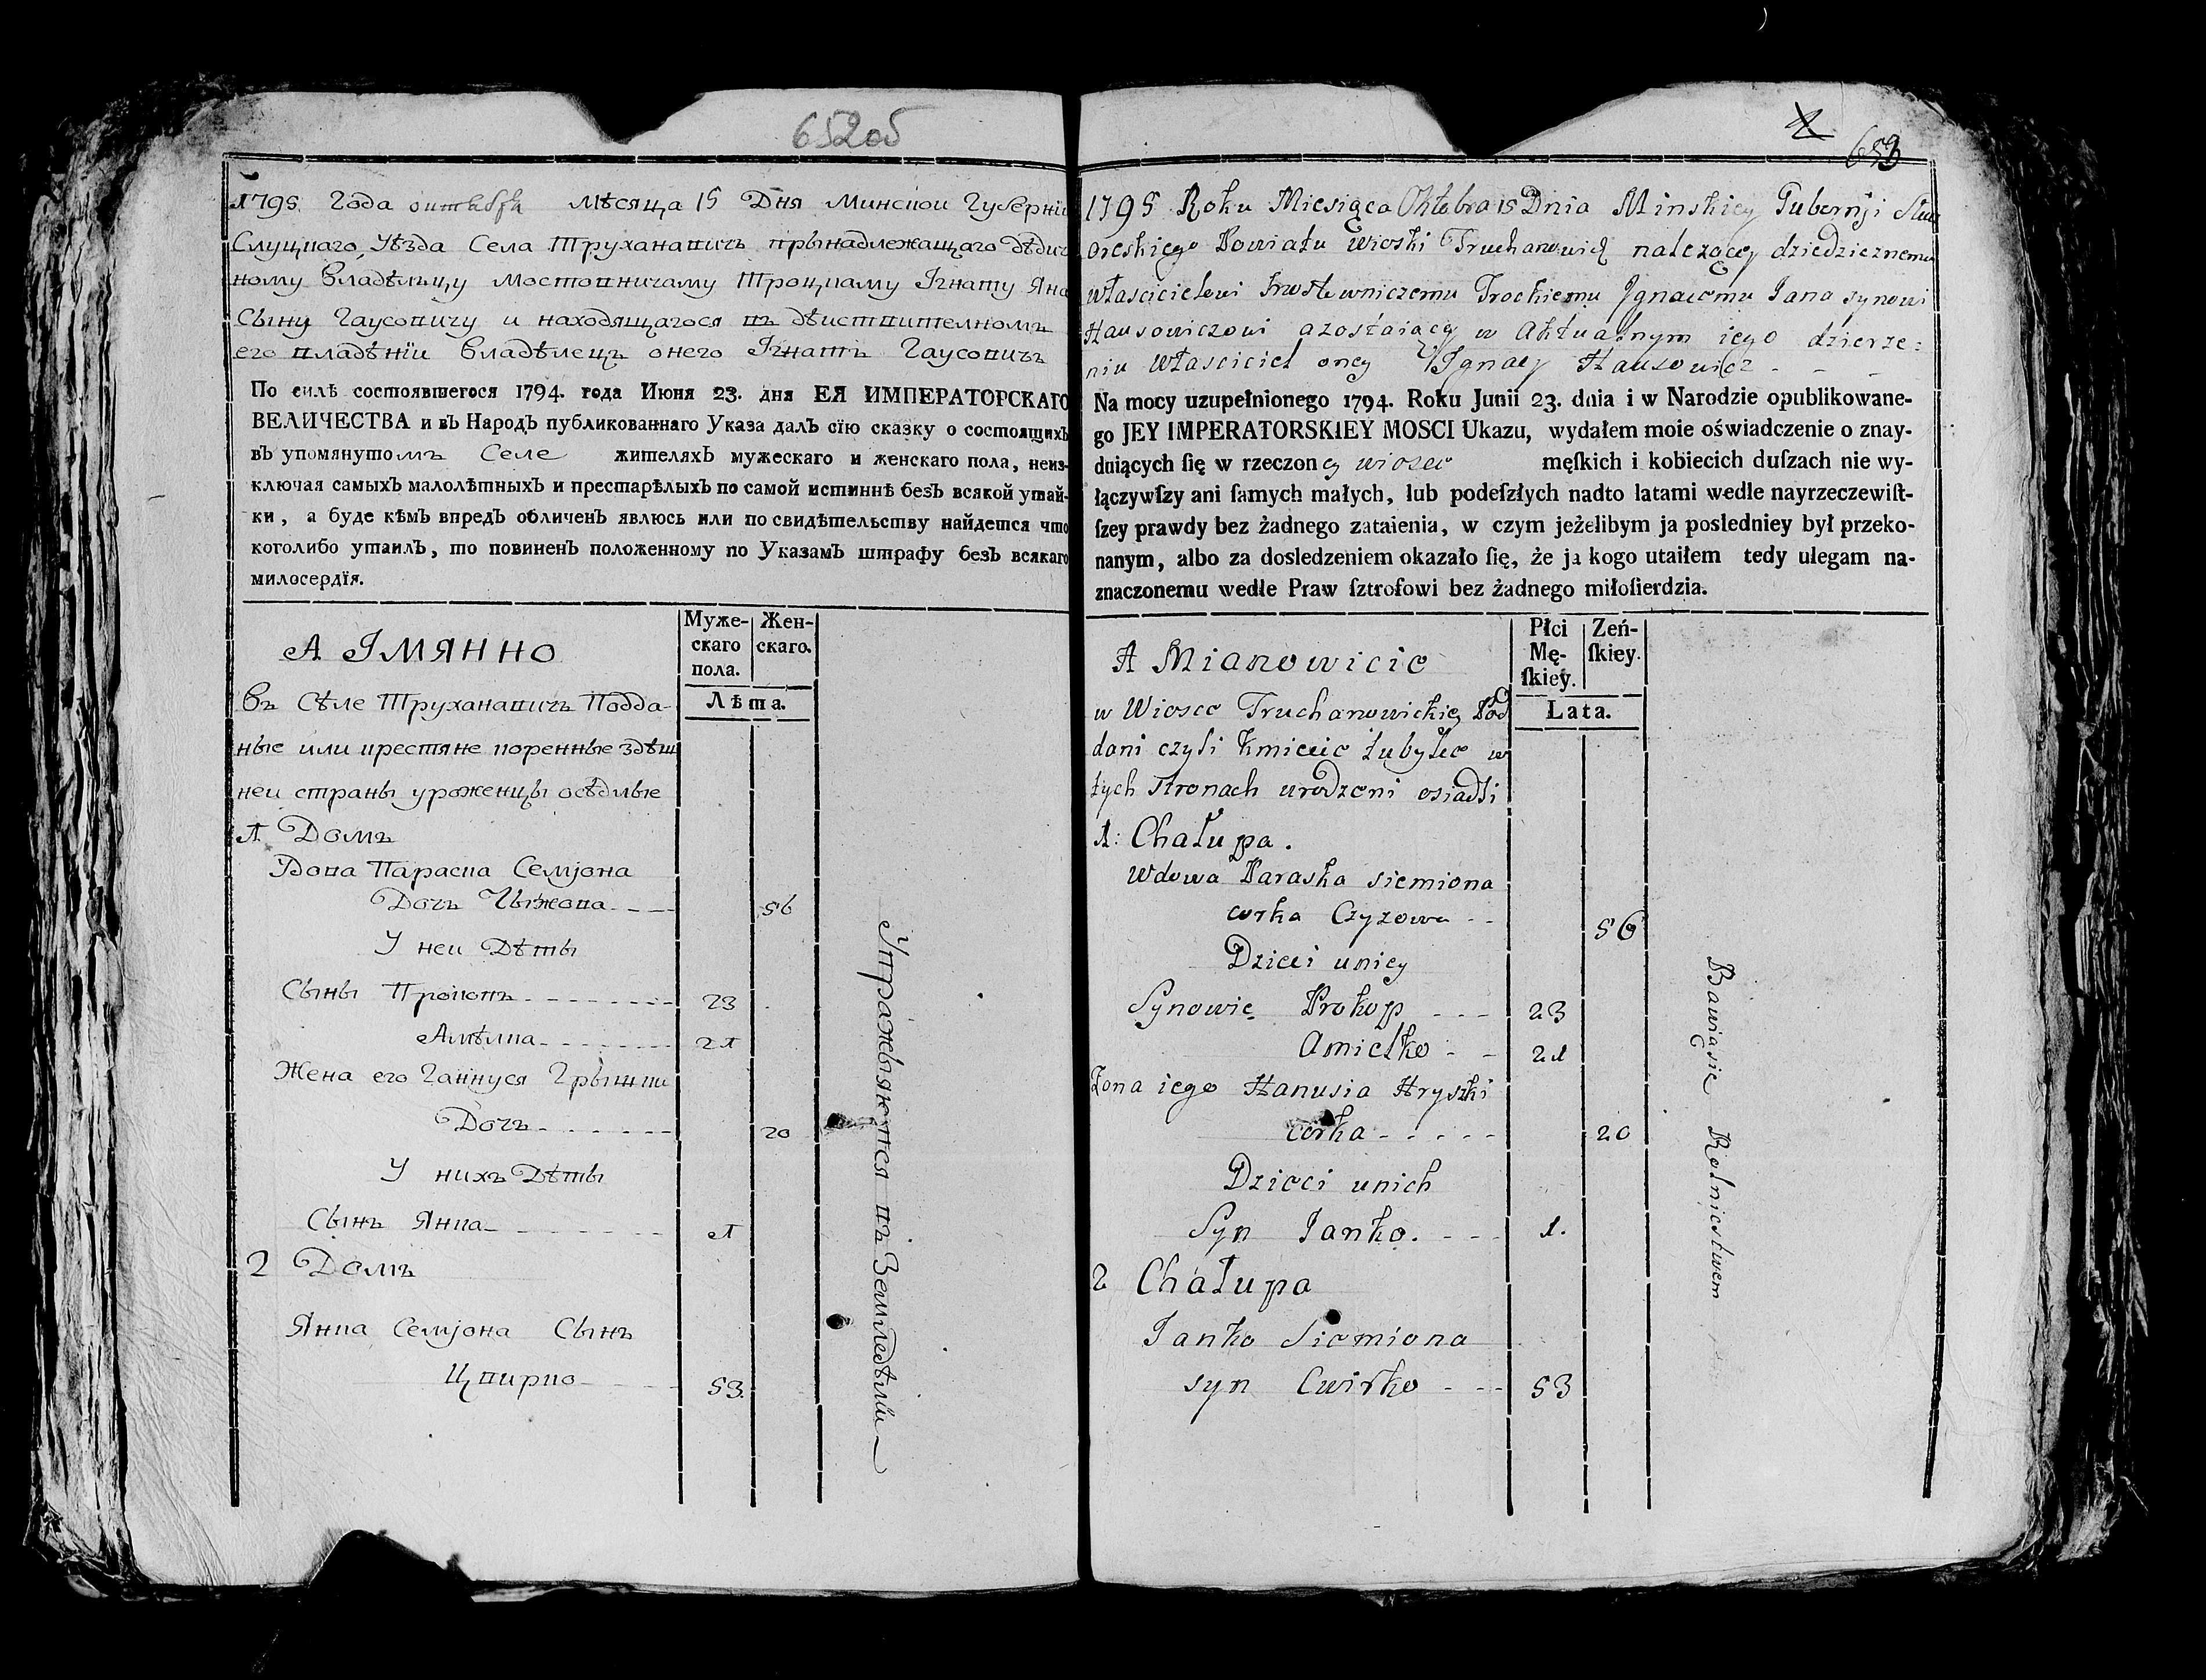 652об
1795 Года октября Мѣсяца 15 Дня Минской Губерніи
Слуцкаго Уѣзда Села Труханавичъ прынадлежащаго дѣдич
ному владѣльцу мостовничаму Троцкаму Iгнату Яна
Сыну Гаусовичу и находящагося въ дѣиствителномъ
его владѣніи владѣлецъ онего Iгнатъ Гаусовичъ
По силѣ состоявшегося 1794. года Июня 23. дня ЕЯ ИМПЕРАТОРСКАГО
ВЕЛИЧЕСТВА и въ Народъ публикованнаго Указа далъ сїю сказку о состоящихъ
въ упомянутомъ Селе жителяхъ мужескаго и женскаго пола, неиз-
ключая самыхъ малолѣтныхъ и престарѣлыхъ по самой истиннѣ безъ всякой утай-
ки, а буде кѣмъ впредъ обличенъ явлюсь или по свидѣтельству найдется что
коголибо утаилъ, то повиненъ положенному по Указамъ штрафу безъ всякаго
милосердїя.
А IМЯННО
Муже-
скаго
пола.
Жен-
скаго.
Лѣта.
въ Сѣле ТруханавичъПодда-
ные или крестяне коренные здѣш
неи страны уроженцы осѣдлые
1 Домъ
Вдова Параска Семjона
Дочъ Чыжова 56
У неи Дѣты
Сыны Прокопъ 23
Амѣлка 21
Жена его Ганнуся Грышки
Дочъ 20
У нихъ Дѣты
Сынъ Янка 1
2 Домъ
Янка Семjона Сынъ
Цвирко 53
Упражьняются въ Земледѣлии
653
1795 Roku Miesiąca Oktobra 15 Dnia Minskiey Gubernji Słuc
oreskiego Powiatu Wioski Truchanowicz należącey dziedzicznemu
właścicielowi Mostowniczemu Trockiemu Jgnacemu Jana synowi
Hausowiczowi a zostaiącey w Aktualnym iego dzierze:
niu właściciel oney Jgnacy Hausowicz
Na mocy uzupełnionego 1794. Roku Junii 23. dnia i w Narodzie opublikowane-
go JEY IMPERATORSKIEY MOSCI Ukazu, wydałem moie oświadczenie o znay-
duiących ſię w rzeczoney wiosce męſkich i kobiecich duſzach nie wy-
łączywſzy ani ſamych małych, lub podeſzłych nadto latami wedle nayrzeczewiſt-
ſzey prawdy bez żadnego zataienia, w czym jeżelibym ja posledniey był przeko-
nanym, albo za dosledzeniem okazało ſię, że ja kogo utaiłem tedy ulegam na-
znaczonemu wedle Praw ſztrofowi bez żadnego miłoſierdzia.
A Mianowicie
Płci
Mę-
ſkiey.
Zeń-
ſkiey.
Lata.
w Wiosce Truchanowickiey Pod
dani czyli kmiecie tubylce w
tych stronach urodzeni osiadli
1: Chałupa.
Wdowa Paraska siemiona
corka Czyzowa 56
Dzieci uniey
Synowie Prokop 23
Amiełko 21
Zona iego Hanusia Hryszki
corka 20
Dzieci unich
Syn Janko. 1.
2 Chałupa
Janko Siemiona
syn Cwirko 53
Bawiąsie Rolnictwem